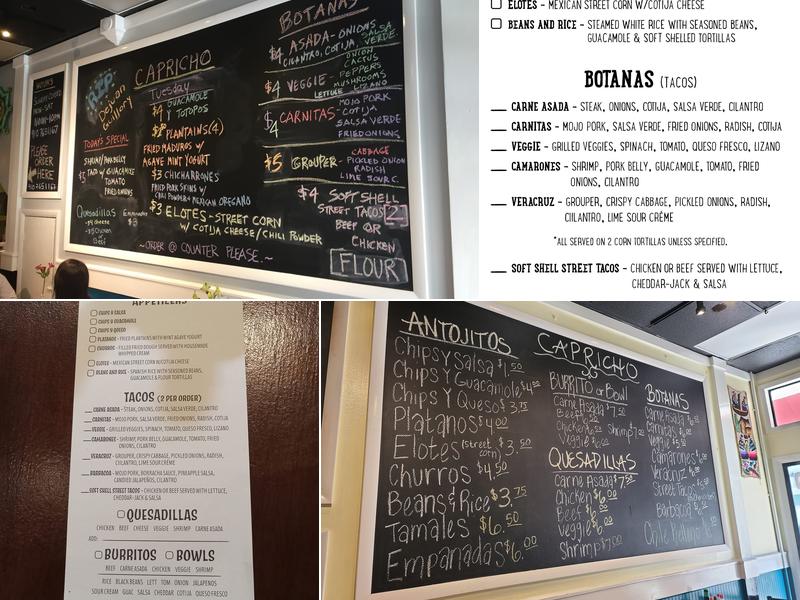 CAPRICHO
Tuesday
$4 GUACAMOLE
Y TOTOPOS
PLANTAINS(4)
FRIED MADUROS W/
AGAVE MINT YOGURT
$3 CHICHARRONES
FRIED PORK SKINS W/
CHILI POWDER & MEXICAN OREGANO
$3 ELOTES - STREET CORN
W/ COTIJA CHEESE/CHILI POWDER
~ORDER @ COUNTER PLEASE.~
TODAYS SPECIAL
SHRIMP/PORK BELLY
TACO W/ GUACAMOLE
TOMATO
FRIED ONIONS
Quesadillas
Empanadas
PLEASE
ORDER
HERE
BOTANAS
$4 ASADA - ONIONS,
CILANTRO, COTIJA, SALSA VERDE
$4 VEGGIE - ONION
CACTUS
PEPPERS
MUSHROOMS
LETTUCE LIZANO
$4 CARNITAS - MOJO PORK
COTIJA
SALSA VERDE
FRIED ONIONS
$5 GROUPER - CABBAGE
PICKLED ONION
RADISH
LIME SOUR C.
$4 SOFT SHELL
STREET TACOS 2
BEEF OR
CHICKEN
FLOUR
ELOTES - MEXICAN STREET CORN W/COTIJA CHEESE
BEANS AND RICE - STEAMED WHITE RICE WITH SEASONED BEANS,
GUACAMOLE & SOFT SHELLED TORTILLAS
BOTANAS (TACOS)
CARNE ASADA - STEAK, ONIONS, COTIJA, SALSA VERDE, CILANTRO
CARNITAS - MOJO PORK, SALSA VERDE, FRIED ONIONS, RADISH, COTIJA
VEGGIE - GRILLED VEGGIES, SPINACH, TOMATO, QUESO FRESCO, LIZANO
CAMARONES - SHRIMP, PORK BELLY, GUACAMOLE, TOMATO, FRIED
ONIONS, CILANTRO
VERACRUZ - GROUPER, CRISPY CABBAGE, PICKLED ONIONS, RADISH,
CIILANTRO, LIME SOUR CRÉME
*ALL SERVED ON 2 CORN TORTILLAS UNLESS SPECIFIED.
SOFT SHELL STREET TACOS - CHICKEN OR BEEF SERVED WITH LETTUCE,
CHEDDAR-JACK & SALSA
APPETIZERS
CHIPS & SALSA
CHIPS & GUACAMOLE
CHIPS Y QUESO
PLATANOS - FRIED PLANTAINS WITH MINT AGAVE YOGURT
CHURROS - FILLED FRIED DOUGH SERVED WITH HOUSEMADE
WHIPPED CREAM
ELOTES - MEXICAN STREET CORN W/COTIJA CHEESE
BEANS AND RICE - SPANISH RICE WITH SEASONED BEANS,
GUACAMOLE & FLOUR TORTILLAS
TACOS (2 PER ORDER)
CARNE ASADA - STEAK, ONIONS, COTIJA, SALSA VERDE, CILANTRO
CARNITAS - MOJO PORK, SALSA VERDE, FRIED ONIONS, RADISH, COTIJA
VEGGIE - GRILLED VEGGIES, SPINACH, TOMATO, QUESO FRESCO, LIZANO
CAMARONES - SHRIMP, PORK BELLY, GUACAMOLE, TOMATO, FRIED
ONIONS, CILANTRO
VERACRUZ - GROUPER, CRISPY CABBAGE, PICKLED ONIONS, RADISH,
CIILANTRO, LIME SOUR CRÉME
BARBACOA - MOJO PORK, BORRACHA SAUCE, PINEAPPLE SALSA,
CANDIED JALAPEÑOS, CILANTRO
SOFT SHELL STREET TACOS - CHICKEN OR BEEF SERVED WITH LETTUCE,
CHEDDAR-JACK & SALSA
QUESADILLAS
CHICKEN BEEF CHEESE VEGGIE SHRIMP CARNE ASADA
ADD:
BURRITOS BOWLS
BEEF CARNE ASADA CHICKEN VEGGIE SHRIMP
RICE BLACK BEANS LETT TOM ONION JALAPENOS
SOUR CREAM GUAC SALSA CHEDDAR COTIJA QUESO FRESCO
ANTOJITOS
Chips Y Salsa $1.50
Chips Y Guacamole $4.00
Chips Y Queso $3.75
Platanos $4.00
Elotes (street corn) $3.50
Churros $4.50
Beans & Rice $3.75
Tamales $6.50
Empanadas $6.00
CAPRICHO
BURRITO or Bowl
Carne Asada $7.50
Beef
Chicken Shrimp
Veggie
QUESADILLAS
Carne Asada $7.50
Chicken $6.00
Beef $6.00
Veggie $6.00
Shrimp $7.00
BOTANAS
Carne Asada
Carnitas
Veggie
Camarones
Veracruz
Street Tacos
Barbacoa